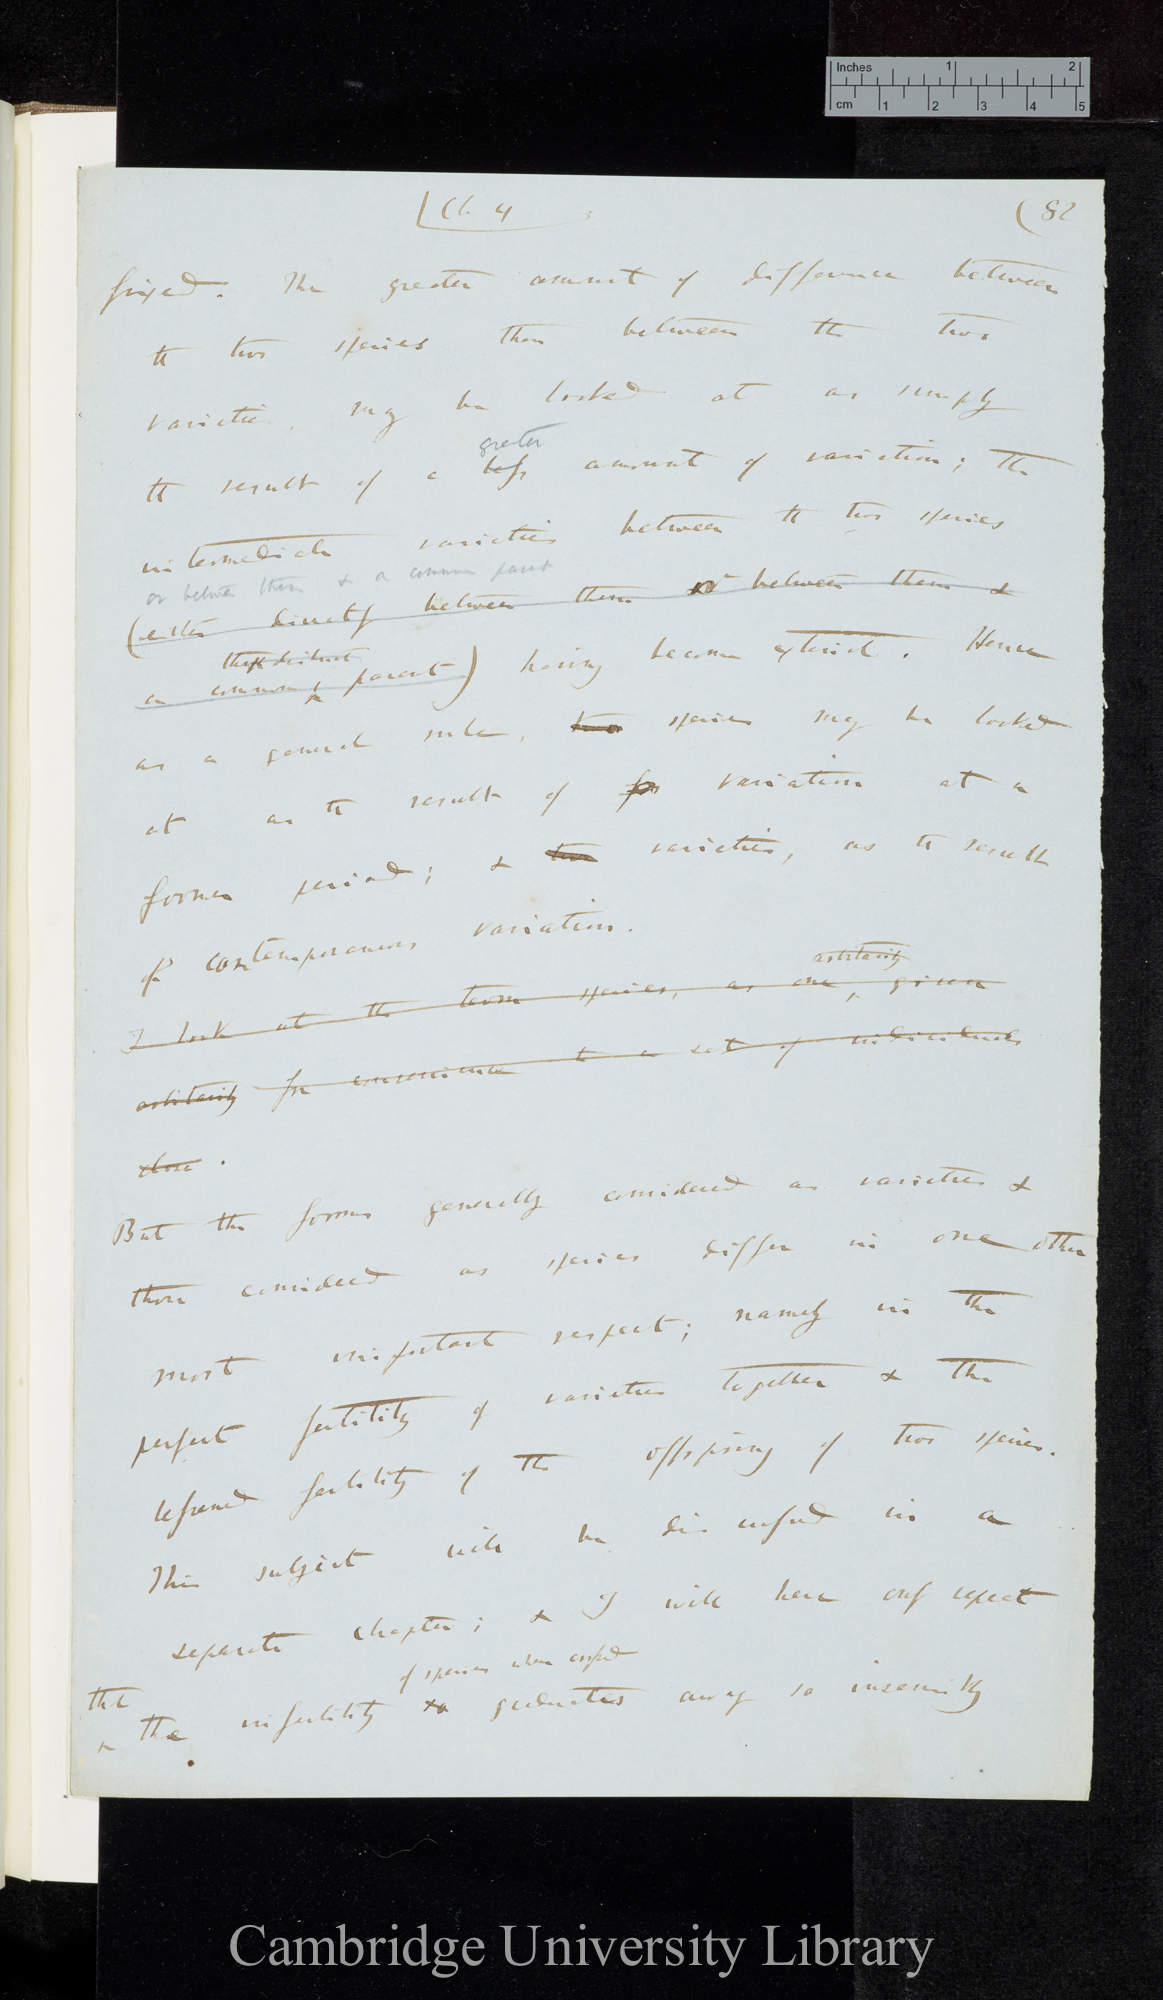 Inches 1 2
cm 1 2 3 4 5
Ch. 4 (82
fixed. The greater amount of difference between
the two species than between the two
varieties, may be looked at as simply
greater
the result of a less amount of variation; the
intermediate varieties between the two species
or between them & a common parent
(either directly between them or between them &
their distinct
a common parent) having become extinct. Hence
as a general rule, two species may be looked
at as the result of variation at a
former period; & two varieties, as the result
of contemporaneous variation.
arbitrarily
I look at the term species, as one, given
arbitrarily for convenience to a set of individuals
close.
But the forms generally considered as varieties &
those considered as species differ in one other
most important respect; namely in the
perfect fertility of varieties together & the
lessened fertility of the offspring of two species.
This subject will be discussed in a
separate chapter; & I will here only repeat
of species when crossed
that
the infertility so graduates away so insensibly
Cambridge University Library